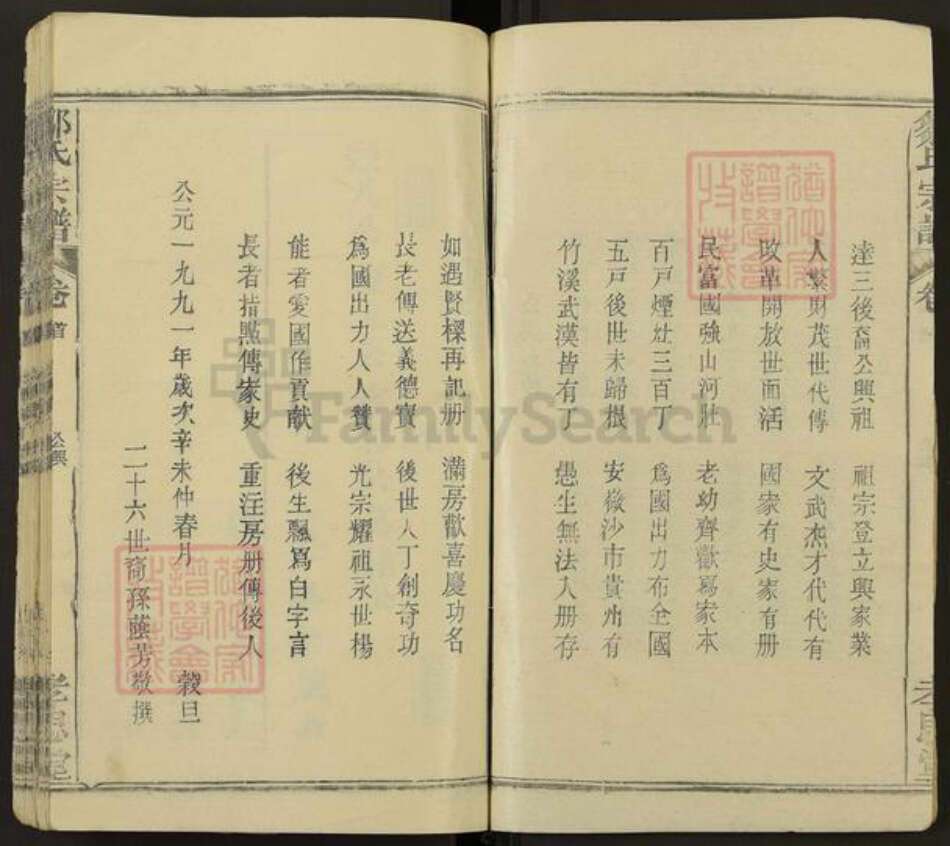 達三後裔公興祖 祖宗登立興家業
人繁財茂世代傳 文武杰才代代有
改革開放世面活 國家有史家有册
民富國強山河壯 老幼齊歡寫家本
百戶煙灶三百丁 爲國出力布全國
五戶後世未歸根 安徽沙市貴州有
竹溪武漢皆有丁 愚生無法入册存
如遇賢樑再記册 滿房歡喜慶功名
長老傳送義德寶 後世人丁創奇功
爲國出力人人贊 光宗耀祖永世楊
能者愛國作貢献 後生飄寫白字言
長者指點傳家史 重注房册傳後人
公元一九九一年歲次辛未仲春月 穀旦
二十六世裔孫 芳敬撰
鄒氏宗譜 卷首 公興
FamilySearch